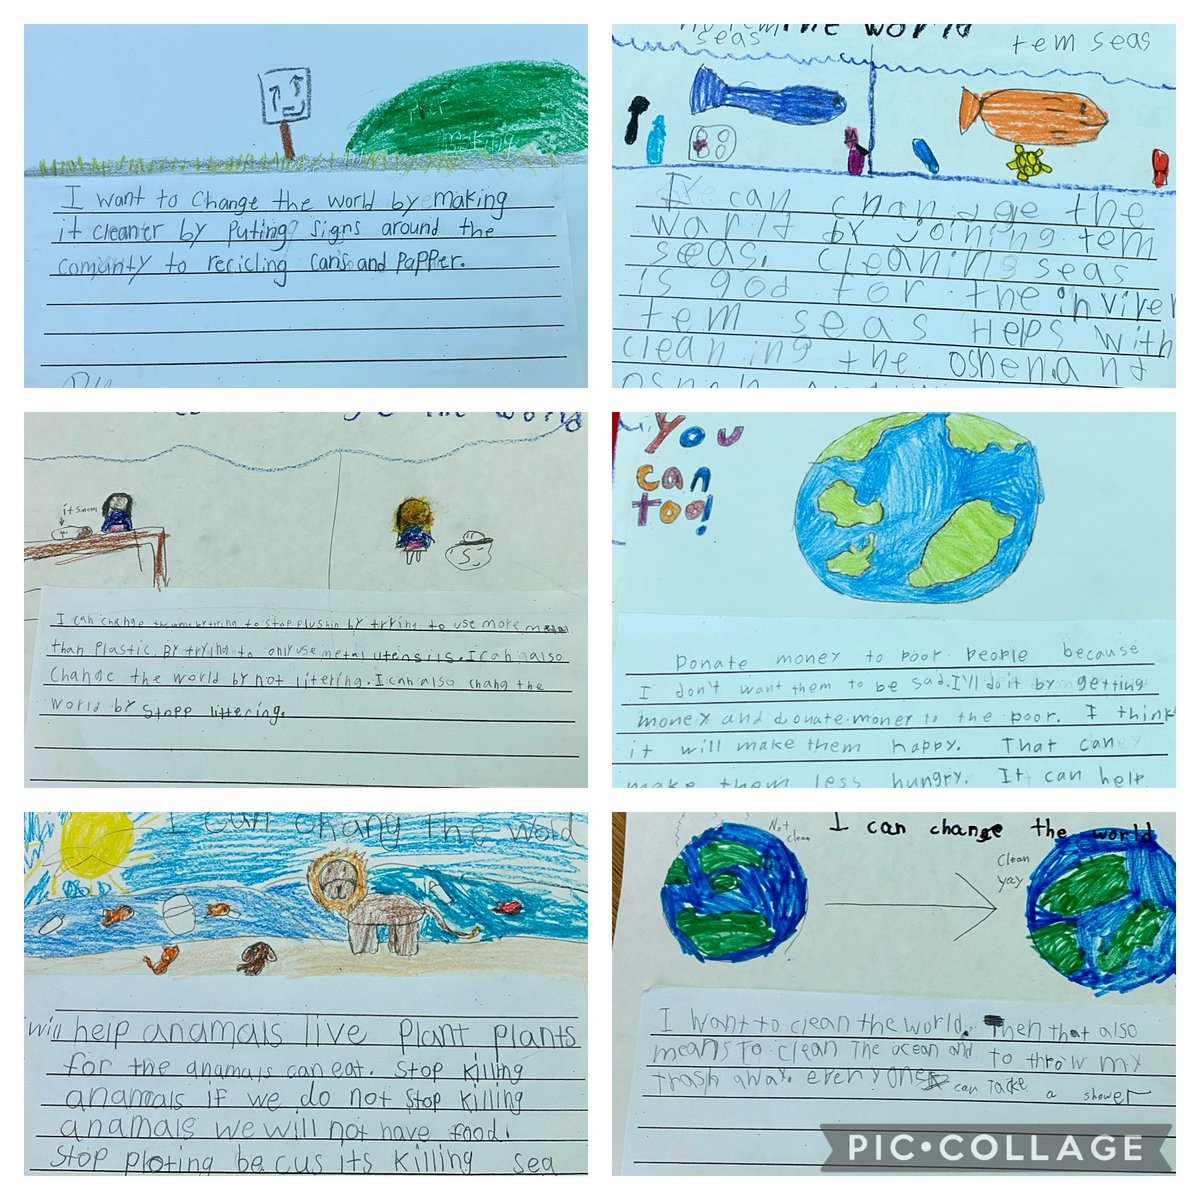 I want to change the world by making
it cleaner by puting signs around the
comunty to recicling cans and papper.
the world
seas
tem seas
I can change the
world by joining tem
seas. cleaning seas
is god for the inviren
tem seas Helps with
cleaning the oshen.and
the world
I can change the world by trying to stop by trying to use more
than Plastic. By trying to only use metal utensils. I can also
change the world by not litering. I can also chang the
world by stopp littering.
You
can
too!
Donate money to poor people because
I don't want them to be sad. I'll do it by getting
money and donate money to the poor. I think
it will make them happy. That can
make them less hungry. It can help
I can chang the wold
will help anamals live Plant plants
for the anamals can eat. Stop killing
anamals if we do not stop killing
anamals we will not have food.
Stop ploting be cus its killing sea
Not
clean
I can change the world
Clean
yay
I want to clean the world. Then that also
means To clean The ocean and to throw my
trash away. everyone can Take a shower
PIC•COLLAGE